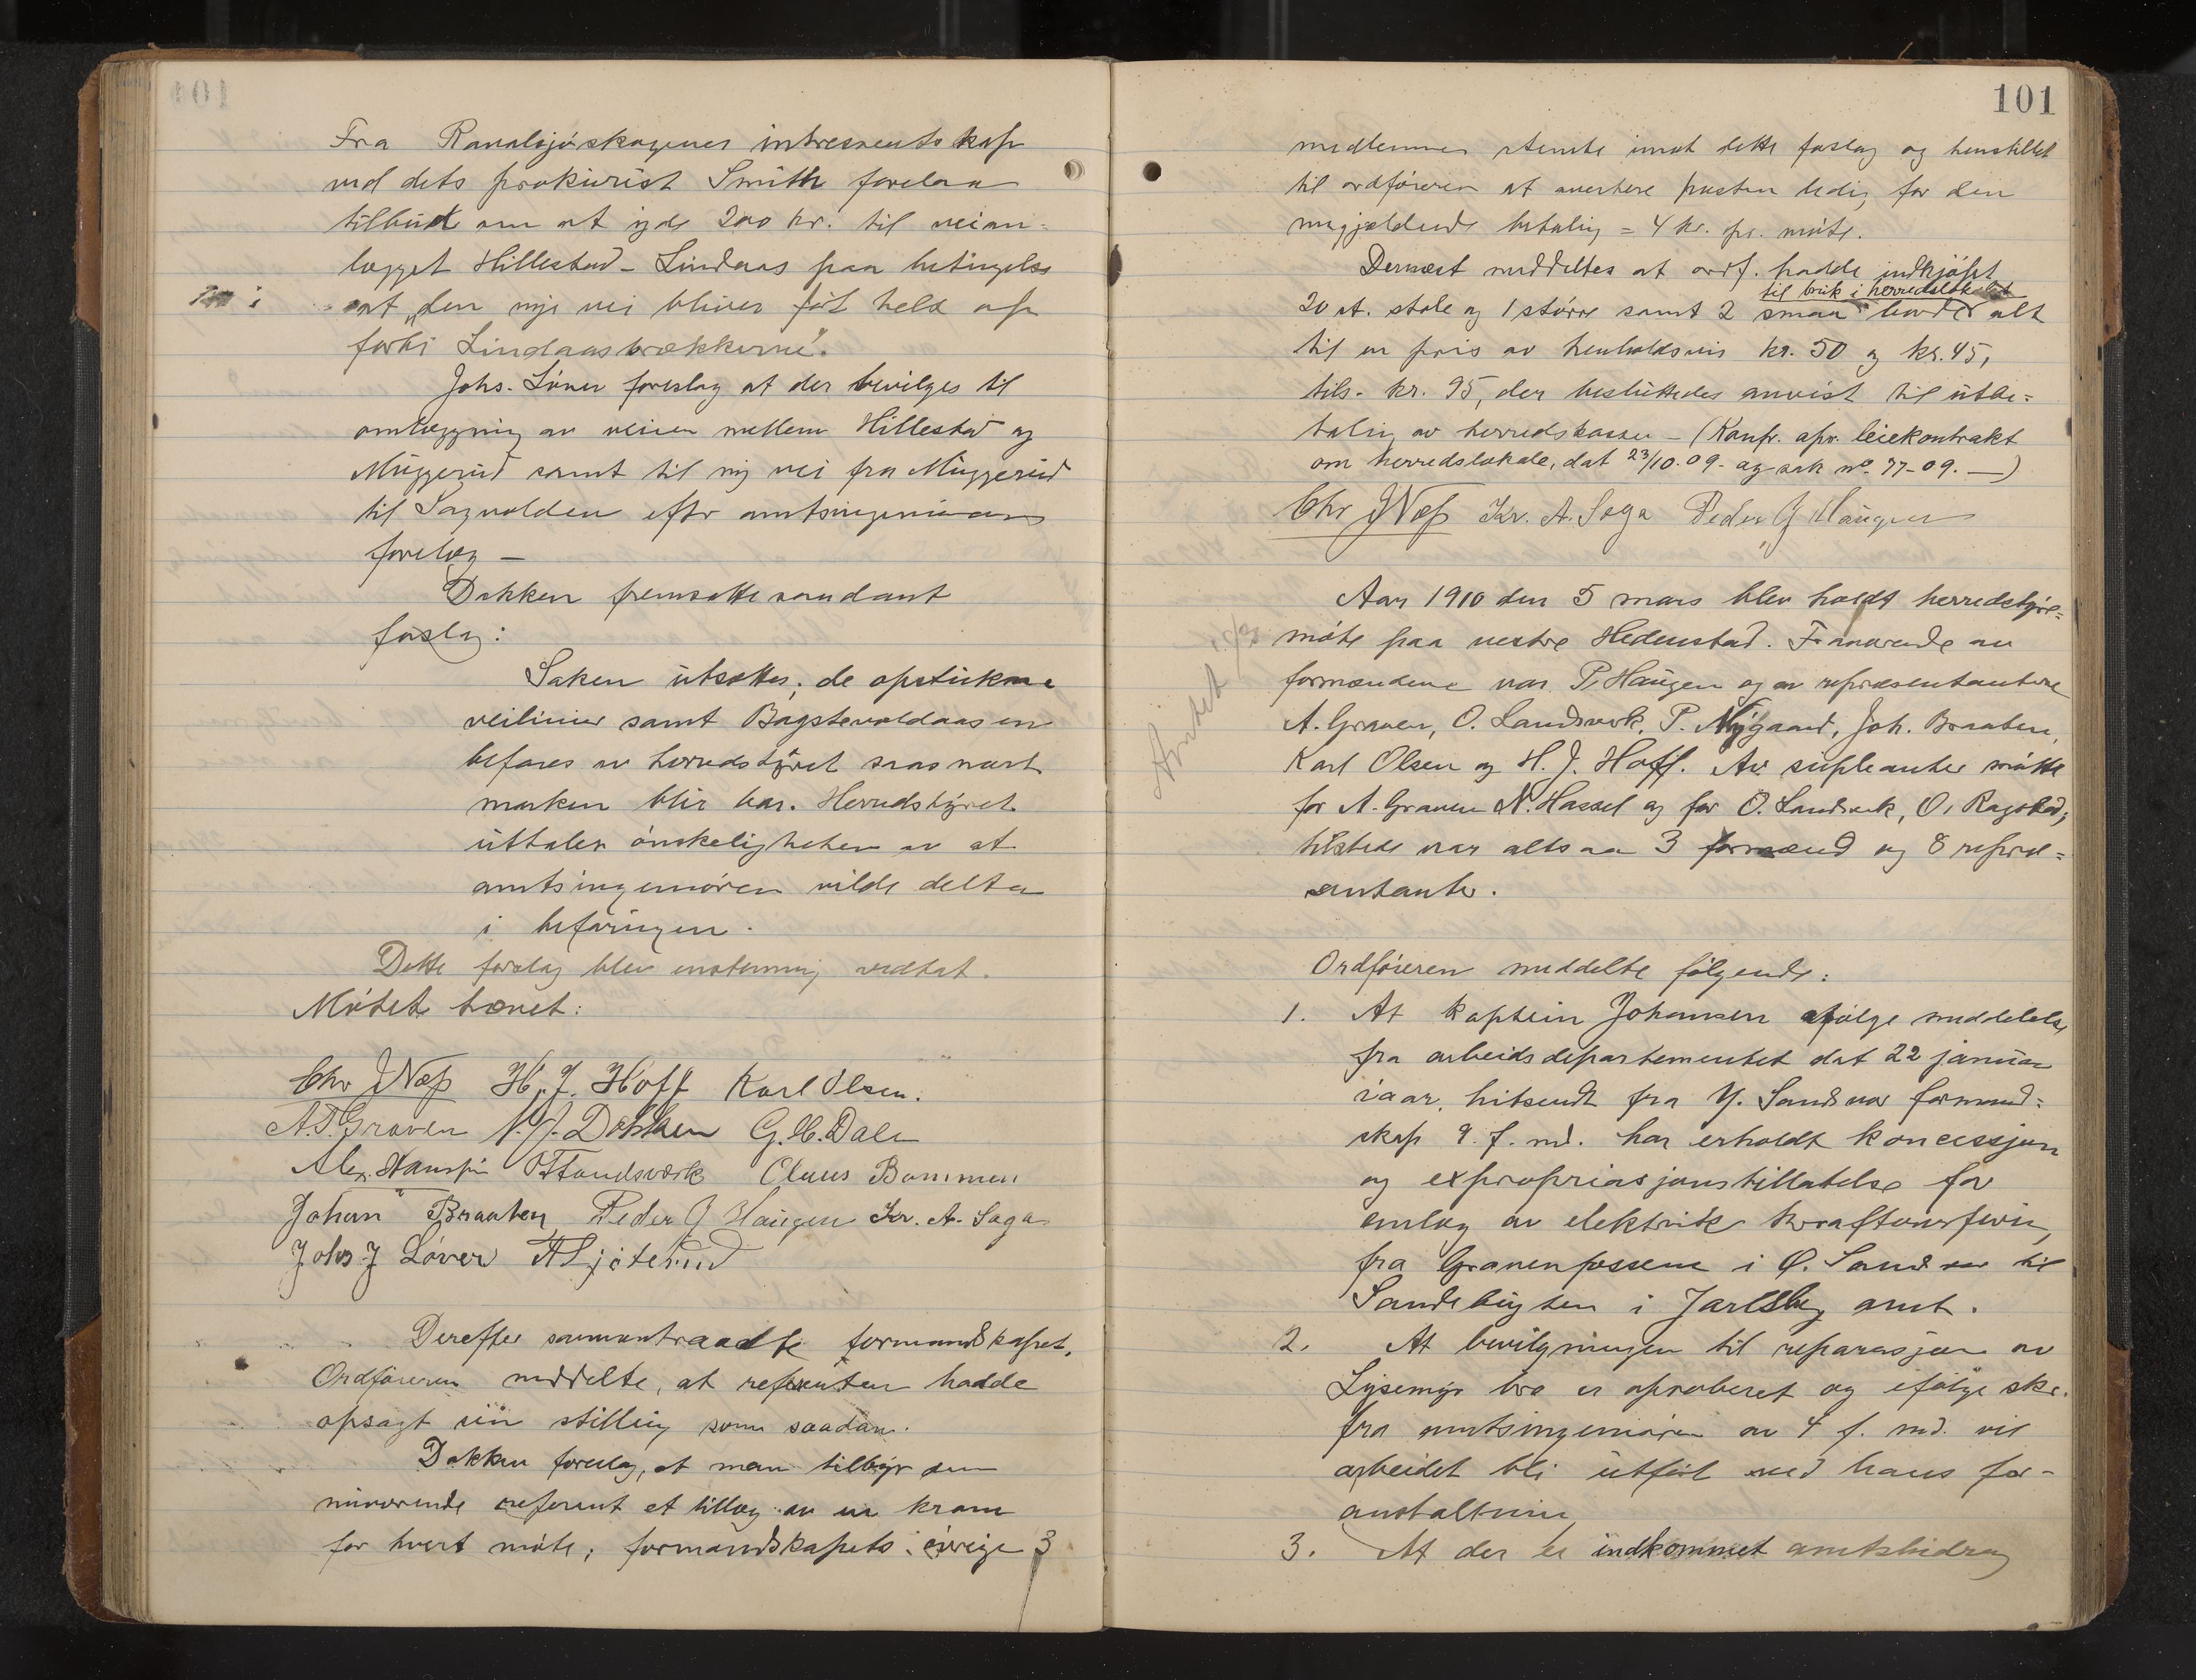 Fra Ravalsjöskogenes intressentskap
ved dets prokurist Smith forelaa
tilbud om at yde 200 kr. til veian-
lægget Hillestad - Lindaas paa betingelse
at "den nye vei bliver ført helt op
forbi Lindaasbrækkerne".
Johs. Löver foreslog at der bevilges til
omlægning av veien mellem Hillestad og
Muggerud samt til ny vei fra Muggerud
til Sagvolden efter amtsingeniørens
forelæg —
Dokken fremsatte saadant
forslag:
Saken utsættes; de opstukne
veilinier samt Bagstevoldaasen
befares av herredstyret saasnart
marken blir bar. Herredstyret
uttaler ønskeligheten av at
amtsingeniøren vilde delta
i befaringen.
Dette forslag blev enstemmig vedtat.
Mötet hævet:
Chr J Næss H. J. Hoff Karl Olsen.
A.T. Graven N. J. Dokken G. H. Dale
Alex. Hansen O T Landsværk Olaus Bommen
Johan Braaten Peder G Haugen Kr. A. Saga
Johs J Löver
Derefter sammentraadte formandskapet.
Ordföreren meddelte, at referenten hadde
opsagt sin stilling som saadan.
Dokken foreslog, at man tilbyr den
nuværende referent et tillæg av en krone
for hvert möte; formandskapets övrige 3
101
medlemmer stemte imot dette forslag og henstillet
til ordföreren at avertere posten ledig for den
nugjældende betaling = 4 kr. pr. möte.
Dernæst meddeltes at ordf. hadde indkjöpt
til bruk i herredslokalet
20 st. stole og 1 större samt 2 smaa borde alt
til en pris av henholdsvis kr. 50 og kr. 45,
tils. kr. 95, der besluttedes anvist til utbe=
taling av herredskassen - (Konfr. opr. leiekontrakt
om herredslokale, dat 23/10.09. og sak no. 77-09. —)
Chr J Næss Kr. A. Saga Peder G Haugen
Aar 1910 den 5 mars blev holdt herredstyre=
möte paa vestre Hedenstad. Fraværende av
formændene var P. Haugen og av repræsentantene
A. Graven, O. Landsverk, P. Nygaard, Joh. Braaten,
Karl Olsen og H. J. Hoff. Av supleanter mötte
for A. Graven N. Hassel og for O. Landsverk, O. Ragstad;
tilstede var altsaa 3 formænd og 8 repræ=
sentanter.
Ordföreren meddelte fölgende:
1. At kaptein Johansen ifölge meddelelse
fra arbeidsdepartementet dat 22 januar
iaar, hitsendt fra Y. Sandsvær formand=
skap 9 f. md. har erholdt koncessjon
og expropriasjonstillatelse for
anlæg av elektrisk kraftoverföring
fra Gravenfossene i Ø. Sandsvær til
Sandebugten i Jarlsberg amt.
2. At bevilgningen til reparasjon av
Lysemyr bro er aproberet og ifölge skr.
fra amtsingeniören av 4 f. md. vil
arbeidet bli utfört ved hans for-
anstaltning
3. At der er indkommet amtsbidrag